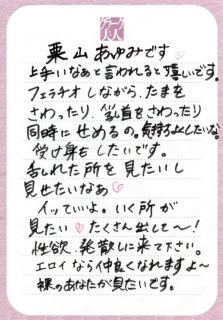 クラブ夫人
栗山あゆみです
上手いなぁと言われると嬉しいです。
フェラチオしながら、たまを
さわったり、乳首をさわったり
同時に せめるの。気持ちよくしたいな。
受け身も したいです。
舌しれた所を見たいし
見せたいなぁ♡
イッていいよ。いく所が
見たい♡たくさん出して〜!
性欲、発散しに来て下さい。
エロイなら仲良くなれますよ〜
裸のあなたが見たいです。